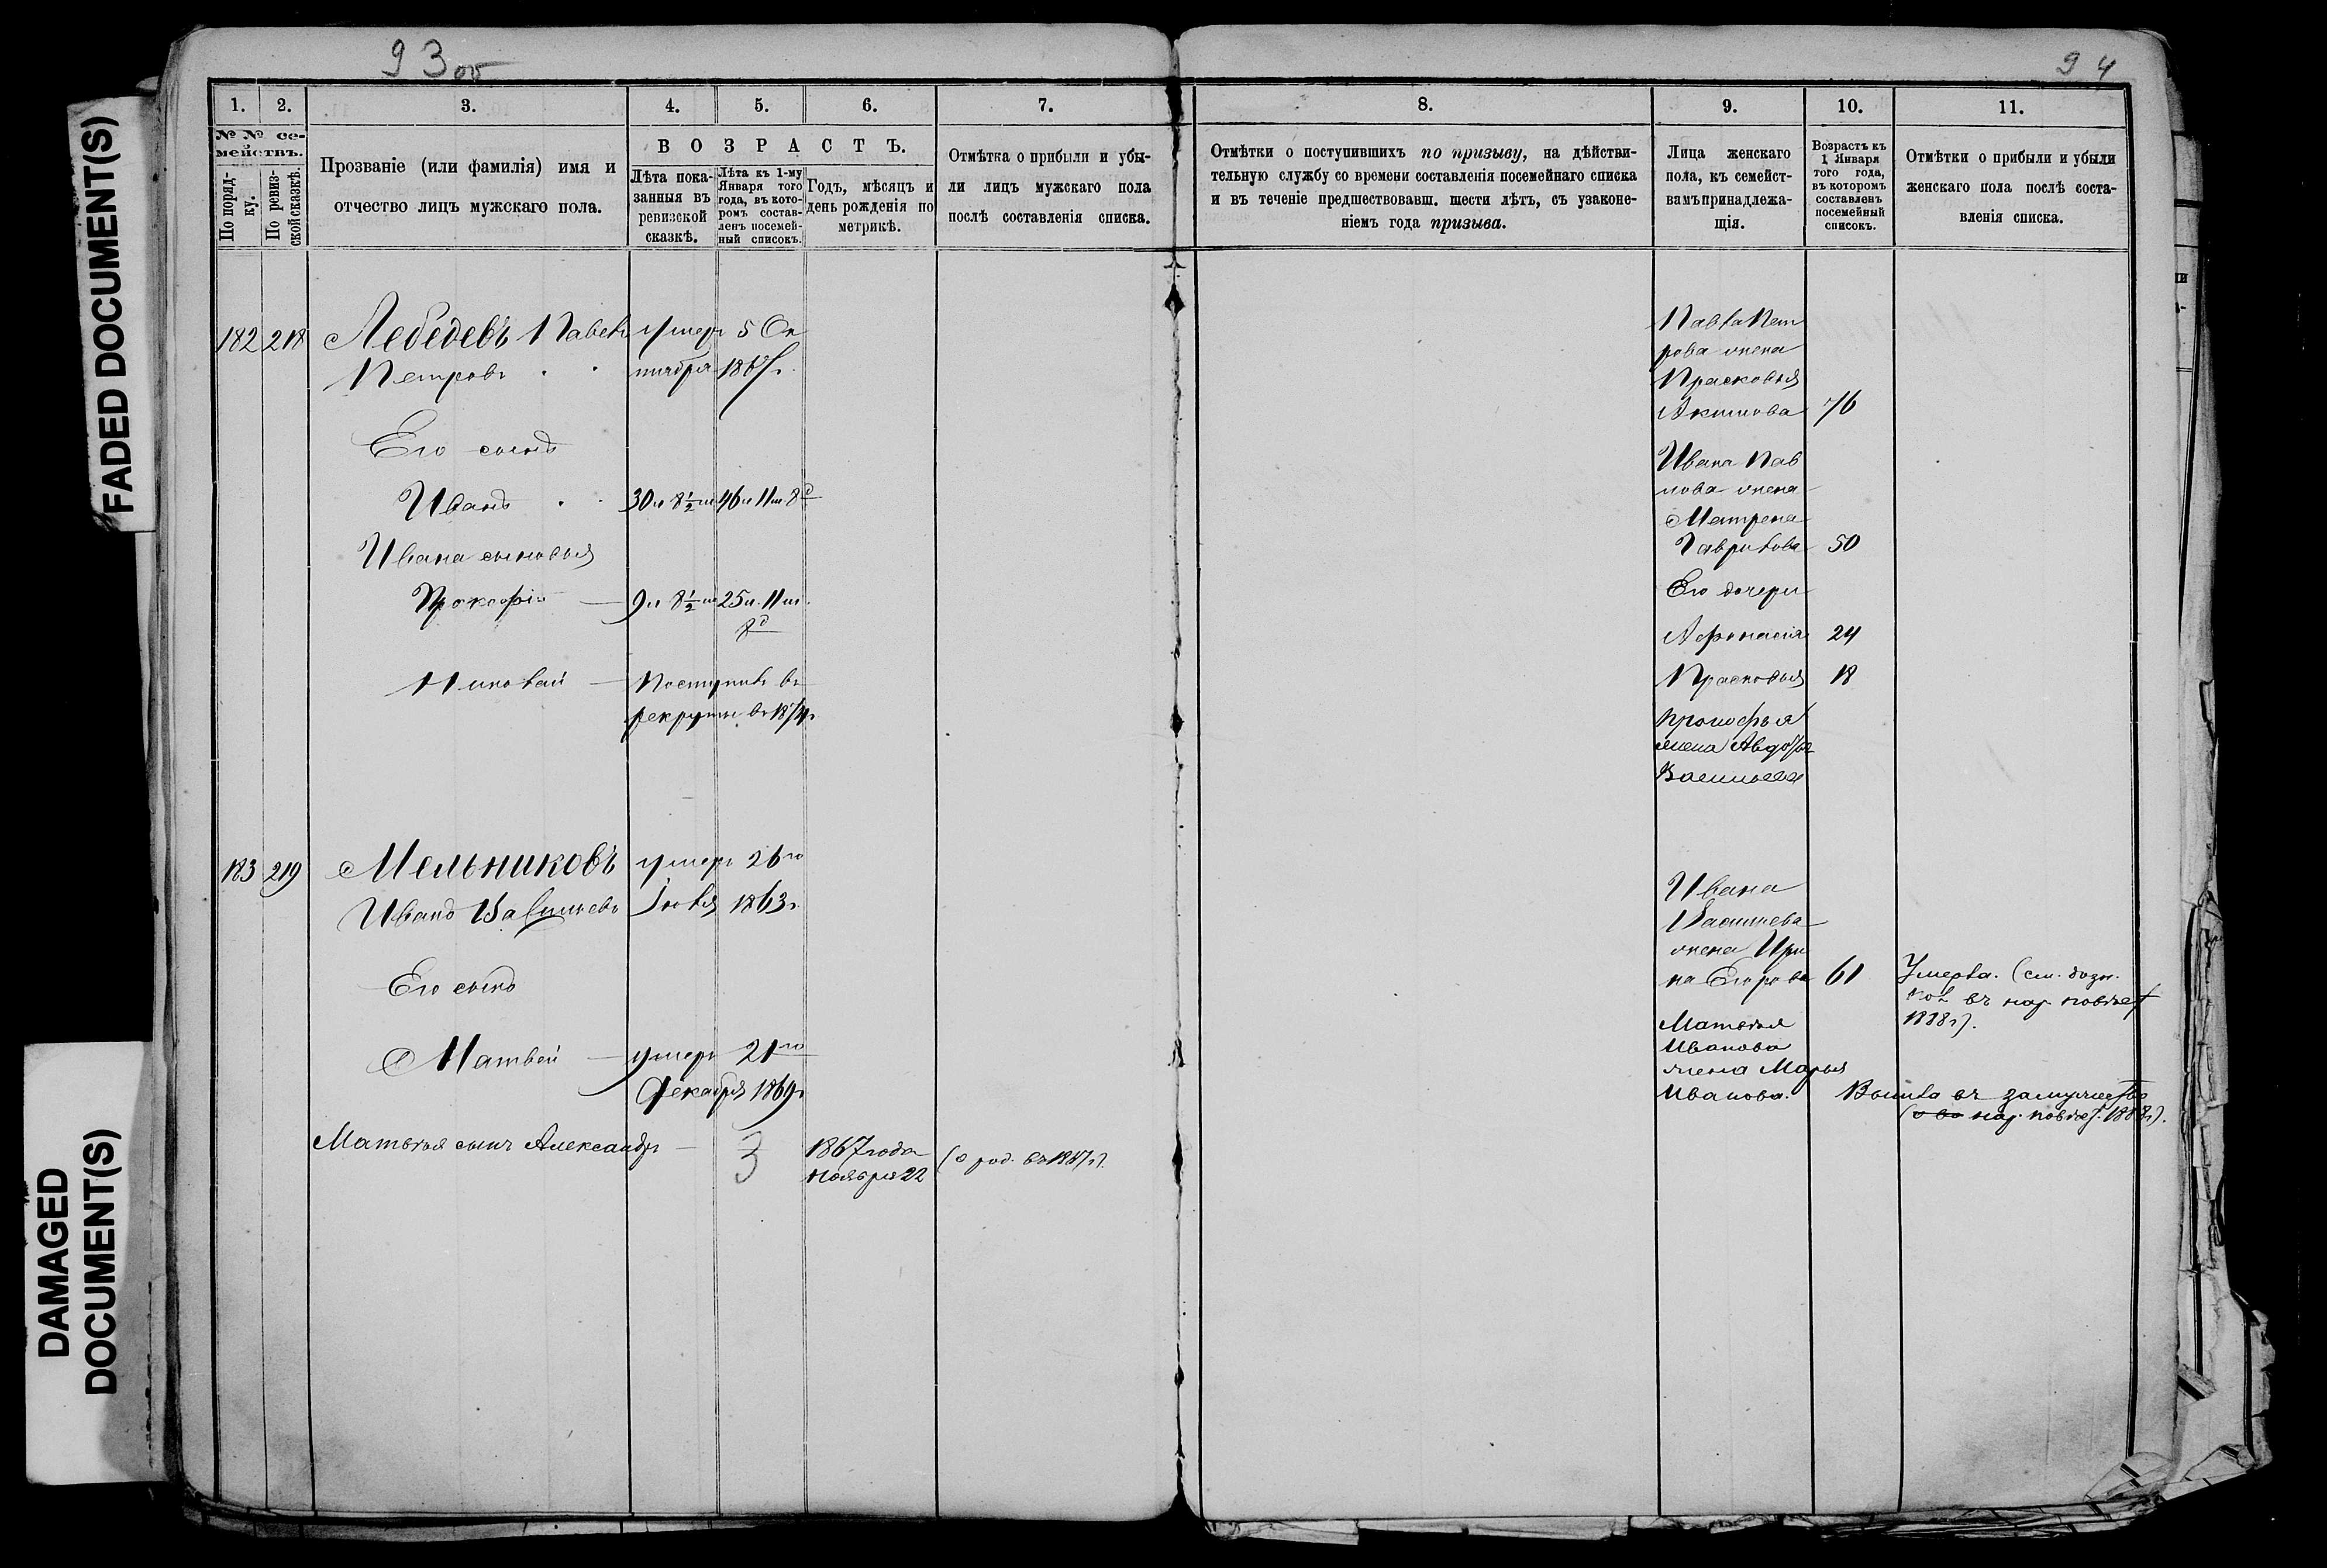 93 об
94
FADED DOCUMENT(S)
DAMAGED
DOCUMENT(S)
1. 2. 3. 4. 5. 6. 7.
№ № се-
мействъ.
По поряд-
ку.
По ревиз-
ской сказкѣ.
Прозваніе (или фамилія) имя и
отчество лицъ мужскаго пола.
ВОЗРАСТЪ.
Лѣта пока-
занныя въ
ревизской
сказкѣ.
Лѣта къ 1-му
Января того
года, въ кото-
ромъ состав-
ленъ посемей-
ный списокъ.
Годъ, мѣсяцъ и
день рожденія по
метрикѣ.
Отмѣтка о прибыли и убы-
ли лицъ мужскаго пола
послѣ составленія списка.
182 218 Лебедевъ Павелъ умеръ 5 Ок
Петровъ тября 186
Его сынъ
Иванъ 30 л 8½ м 46 л 11 м 8 д
Ивана сыновья
Прокофій 9 л 8½ м 25 л. 11 м.
8 д
Николай Поступилъ въ
рекруты въ 1874 г
183 219 Мельниковъ умеръ 26го
Иванъ Васильевъ Іюля 1863 г.
Его сынъ
Матвей умеръ 21го
Декабря 1869 г
Матвѣя сынъ Александръ 3 1867 года (о род. въ 1887 г).
Ноября 22
8. 9. 10. 11.
Отмѣтки о поступившихъ по призыву, на дѣйстви-
тельную службу со времени составленія посемейнаго списка
и въ теченіе предшествовавш. шести лѣтъ, съ узаконе-
ніемъ года призыва.
Лица женскаго
пола, къ семейст-
вамъ принадлежа-
щія.
Возрастъ къ
1 Января
того года,
въ которомъ
составленъ
посемейный
списокъ.
Отмѣтки о прибыли и убыли
женскаго пола послѣ соста-
вленія списка.
Павла Пет
рова жена
Прасковья
Акимова 76
Ивана Пав
лова жена
Матрена
Гаврилова 50
Его дочери
Афонасія 24
Прасковья 18
Прокофья
жена Авдотья
Васильева
Ивана
Васильева
жена Ири
на Егорова 61 Умерла. (см.
въ нар.
1888 г).
Матвѣя
Иванова
жена Марья
Иванова. Вышла въ замужество
нар. 1888 г).